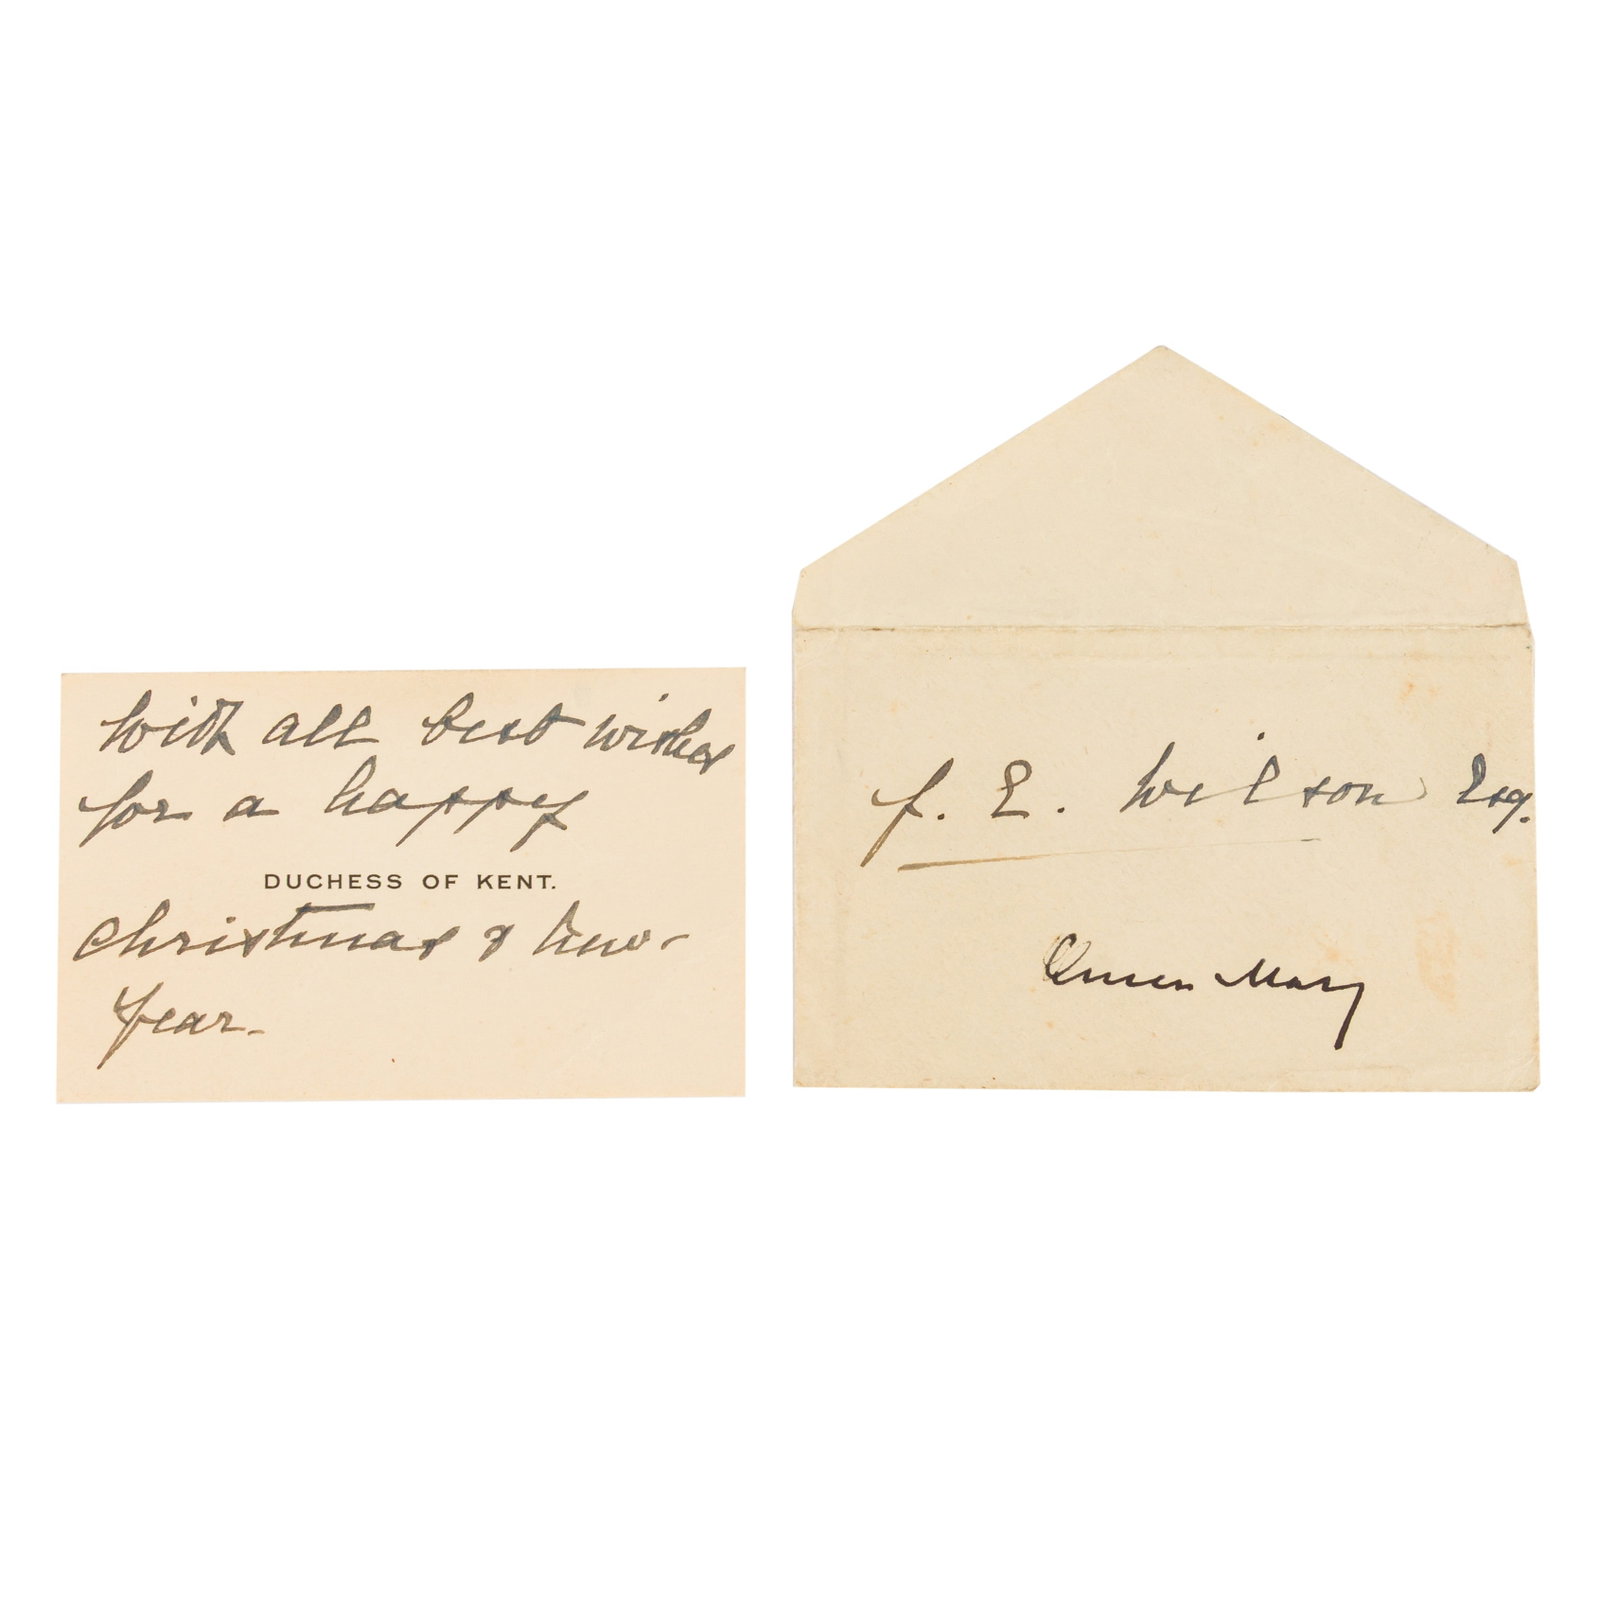 With all best wishes
for a happy
DUCHESS OF KENT.
Christmas & New-
Year.
f. E. Wilson Esq.
Queen Mary